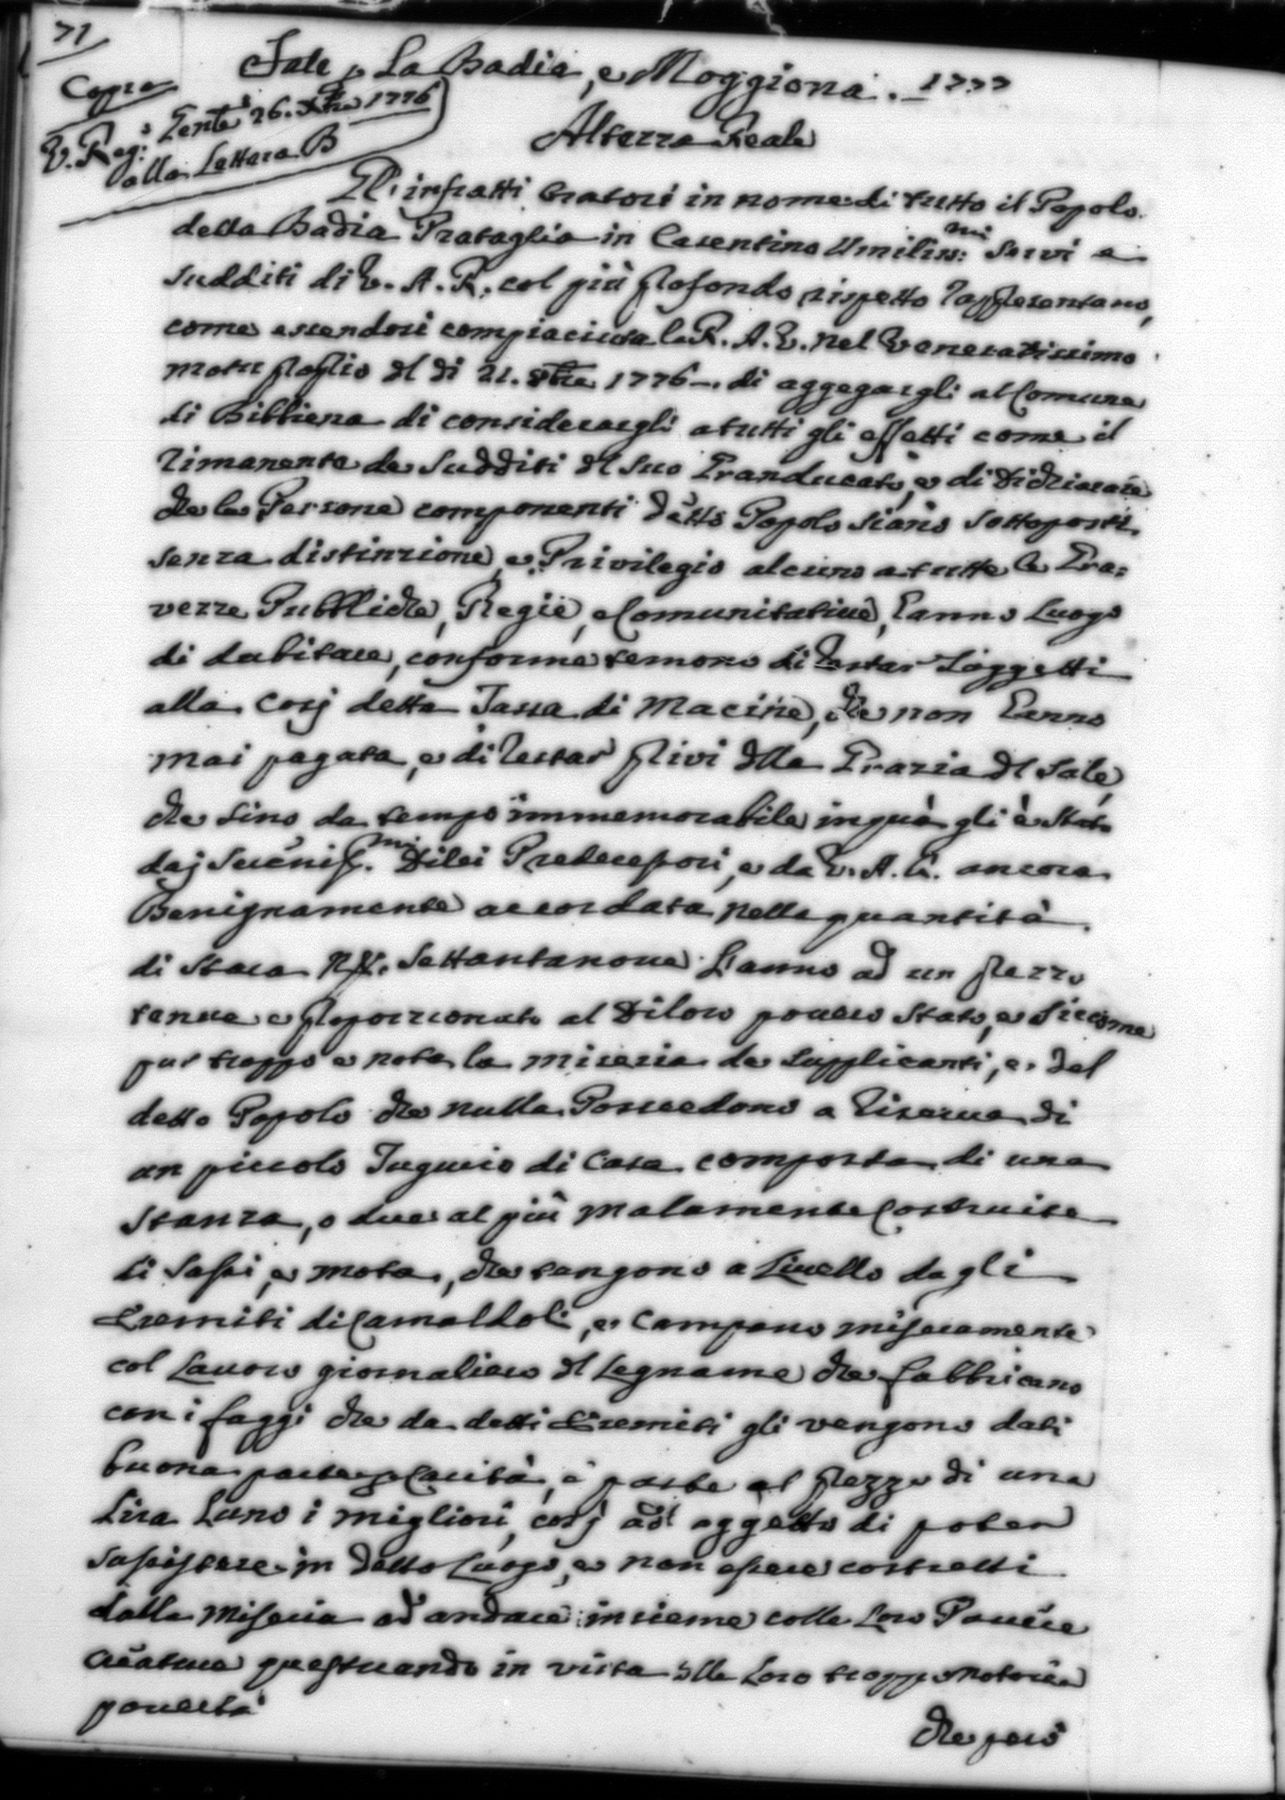 71
Sale p. La Badia, e Moggiona. 1777
Copia
V. Reg.o 26. Xbre 1776
alla Lettera B
Altezza Reale
Gl'infratti Oratori in nome di tutto il Popolo
della Badia Prataglia in Casentino Umiliss:mi Servi e
Sudditi di V. A. R. col più profondo rispetto rappresentano,
come essendosi compiaciuta la R. A. V. nel Veneratissimo
motu proprio del dì 21. 8bre 1776 di aggegargli al Comune
di Bibbiena di considerargli a tutti gli effetti come il
rimanente de Sudditi del Suo Granducato, e di dichiarare
che le Persone componenti detto Popolo siano sottoposti
senza distinzione, e Privilegio alcuno a tutte le Gra=
vezze Pubbliche, Regie, e Comunitative, hanno luogo
di dubitare, conforme temono di restar soggetti
alla così detta Tassa di Macine, che non hanno
mai pagata, e di restar privi della Grazia del Sale,
che sino da tempo immemorabile in quà gli è stata
daj Sereniss.mi Dilei Predecessori, e da V. A. R. ancora
Benignamente accordata nella quantità
di Staia N. Settantanove l'anno ad un prezzo
tenue e proporzionato al Diloro povero Stato, e siccome
pur troppo e nota la miseria de Supplicanti, e del
detto Popolo che nulla Possiedono a riserva di
un piccolo Tugurio di Casa composta di una
Stanza, o due al più malamente Costruite
di Sassi, e mota, che tengono a Livello dagli
Eremiti di Camaldoli, e campano miseramente
col Lavoro giornaliero del Legname che fabbricano
con i faggi che da detti Eremiti gli vengono dati
buona parte p. Carità, e parte al prezzo di una
Lira l'uno i migliori, così ad oggetto di poter
sussistere in detto Luogo, e non essere costretti
dalla Miseria ad andare insieme colle loro Povere
Creature questuando in vista della loro troppo notoria
povertà
che però